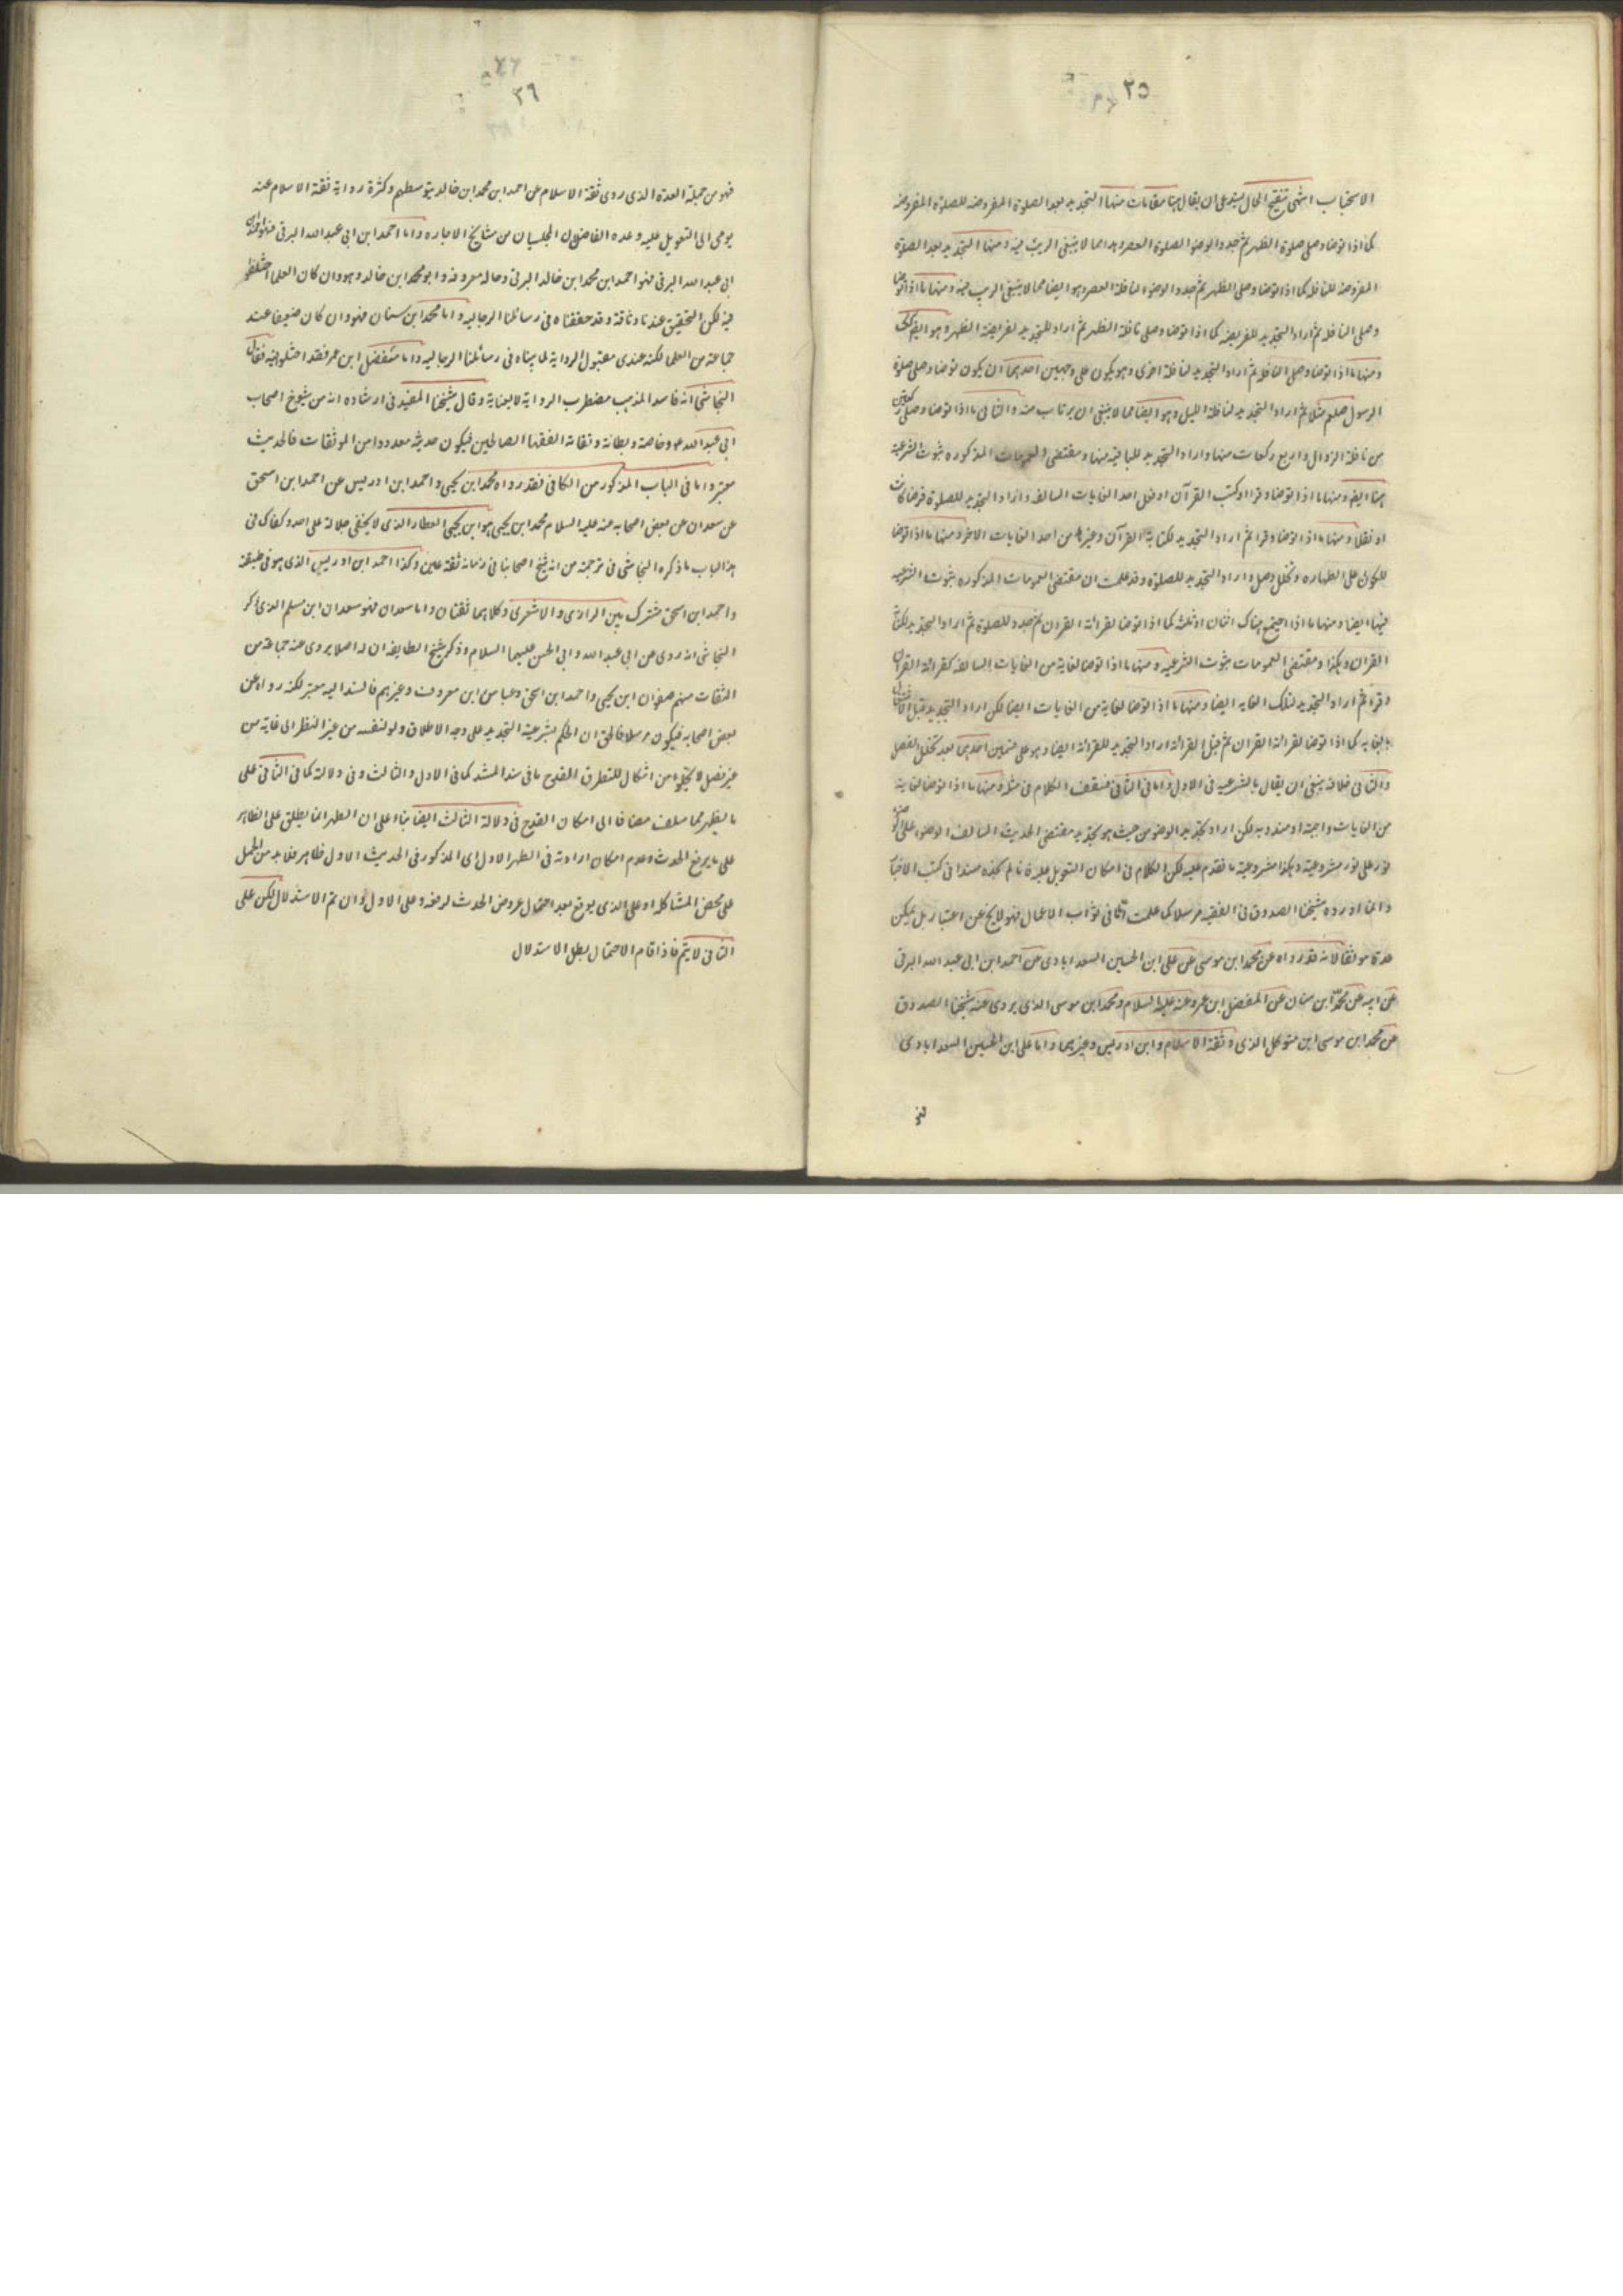 ٢٥
الاستحباب انتهى تنقيح الحال يستدعى ان يقال هنا مقامات منها التجديد بعد الصلوة المفروضه للصلوة المفروضه
كما اذا توضا وصلى صلوة الظهر ثم جدد الوضوء لصلوة العصر وهذا مما لا ينبغى الريب فيه ومنها التجديد بعد الصلوة
المفروضه للنافله كما اذا توضا وصلى الظهر ثم جدد الوضوء لنافلة العصر وهو ايضا مما لا ينبغى الريب فيه ومنها ما اذا توضا
وصلى النافله ثم اراد التجديد للفريضه كما اذا توضا وصلى نافلة الظهر ثم اراد التجديد لفريضة الظهر وهو ايضا كك
ومنها ما اذا توضا وصلى النافله ثم اراد التجديد لنافلة اخرى وهو يكون على وجهين احدهما ان يكون توضا وصلى صلوة
الرسول صلعم مثلا ثم اراد التجديد لنافلة الليل وهو ايضا مما لا ينبغى ان يرتاب منه والثانى ما اذا توضا وصلى ركعتين
من نافلة الزوال واربع ركعات منها واراد التجديد للباقية منها ومقتضى العمومات المذكوره ثبوت الشرعية
هنا ايضا ومنها ما اذا توضا وقرا او كتب القرآن او فعل احد الغايات السالفه واراد التجديد للصلوة فرضا كانت
او نفلا ومنها ما اذا توضا وقرا ثم اراد التجديد لكتابة القرآن وغيرها من احد الغايات الاخر ومنها ما اذا توضا
للكون على الطهاره وتخلل وصل واراد التجديد للصلوة وقد علمت ان مقتضى العمومات المذكوره ثبوت الشرعيه
فيها ايضا ومنها ما اذا اجتمع هناك اثنان او ثلثه كما اذا توضا لقرائة القران ثم جدد للصلوة ثم اراد التجديد لكتابة
القران وهكذا ومقتضى العمومات ثبوت الشرعيه ومنها ما اذا توضا لغاية من الغايات السالفه كقرائة القرآن
وقرأ ثم اراد التجديد لتلك الغايه ايضا ومنها ما اذا توضا لغاية من الغايات ايضا لكن اراد التجديد قبل الاشتغال
بالغايه كما اذا توضا لقرائة القران ثم قبل القرائة اراد التجديد للقرائة ايضا وهو على قسمين احدهما بعد تخلل الفصل
والثانى خلافه ينبغى ان يقال بالشرعيه فى الاول واما فى الثانى فستقف الكلام فى مثله ومنها ما اذا توضا لغاية
من الغايات واجبة او مندوبه لكن اراد تجديد الوضوء من حيث هو تجديد مقتضى الحديث السالف الوضوء على الوضوء
نور على نور مشروعيته وهكذا مشروعية ما تقدم عليه لكن الكلام فى امكان التعويل عليه فانا لم نجده مسندا فى كتب الاخبار
وانما اورده شيخنا الصدوق فى الفقيه مرسلا كما علمت اما فى ثواب الاعمال فهو لا يخ عن اعتبار بل يمكن
عده موثقا لانه قد رواه عن محمد ابن موسى عن على ابن الحسين السعد ابادى عن احمد ابن ابى عبد الله البرقى
عن ابيه عن محمد ابن سنان عن المفضل ابن عمر وعنه عليه السلام ومحمد ابن موسى الذى يروى عنه شيخنا الصدوق
عن محمد ابن موسى ابن متوكل الذى وثقة الاسلام وابن ادريس وغيرهما واما على ابن الحسين السعد ابادى
فهو
٢٦
فهو من جملة العدة الذى روى ثقة الاسلام عن احمد ابن محمد ابن خالد بتوسطهم وكثرة رواية ثقة الاسلام عنه
يومى الى التعويل عليه وعده الفاضلان المجلسيان من مشايخ الاجازه واما احمد ابن ابى عبد الله البرقى فهو
ابى عبد الله البرقى فهو احمد ابن محمد ابن خالد البرقى وحاله معروفه وابو محمد ابن خالد وهو وان كان العلما اختلفوا
فيه لكن التحقيق عندنا وثاقته وقد حققناه فى رسائلنا الرجاليه واما محمد ابن سنان فهو وان كان ضعيفا عند
جماعة من العلما لكنه عندى مقبول الرواية لما بيناه فى رسائلنا الرجاليه واما مفضل ابن عمر فقد اختلفوا فيه فقال
النجاشى انه فاسد المذهب مضطرب الرواية لا يعبأ به وقال شيخنا المفيد فى ارشاده انه من شيوخ اصحاب
ابى عبد الله ع وخاصته وبطانته وثقاته الفقها الصالحين فيكون حديثه معدودا من الموثقات فالحديث
معتبر واما فى الباب المذكور من الكافى فقد رواه محمد ابن يحيى واحمد ابن ادريس عن احمد ابن اسحق
عن سعدان عن بعض اصحابه عنه عليه السلام محمد ابن يحيى هو ابن يحيى العطار الذى لا يخفى جلالة على احد وكفاك فى
هذا الباب ما ذكره النجاشى فى ترجمته من انه شيخ اصحابنا فى زمانه ثقة عين وكذا احمد ابن ادريس الذى هو فى طبقته
واحمد ابن اسحق مشترك بين الرازى والاشعرى وكلاهما ثقتان واما سعدان فهو سعدان ابن مسلم الذى ذكر
النجاشى انه روى عن ابى عبد الله وابى الحسن عليهما السلام وذكر شيخ الطايفه ان له اصلا يروى عنه جماعة من
الثقات منهم صفوان ابن يحيى واحمد ابن اسحق وعباس ابن معروف وغيرهم فالسند اليه معتبر لكنه رواه عن
بعض اصحابه فيكون مرسلا فالحق ان الحكم بشرعية التجديد على وجه الاطلاق ولو لنفسه من غير النظر الى غاية من
غير فصل لا يخلو من اشكال للتطرق القدح ما فى سند المستند كما فى الاول والثالث وفى دلالته كما فى الثانى على
ما يظهر مما سلف مضافا الى امكان القدح فى دلالة الثالث ايضا بناء على ان الطهر انما يطلق على الظاهر
على ما يرفع الحدث وعدم امكان ارادته فى الطهر الاول اى المذكور فى الحديث الاول ظاهر فلا بد من الحمل
على محض المشاكله او على الذى يوقع بعد احتمال عروض الحدث لرفعه وعلى الاول وان تم الاستدلال لكن على
الثانى لا يتم فاذا قام الاحتمال بطل الاستدلال